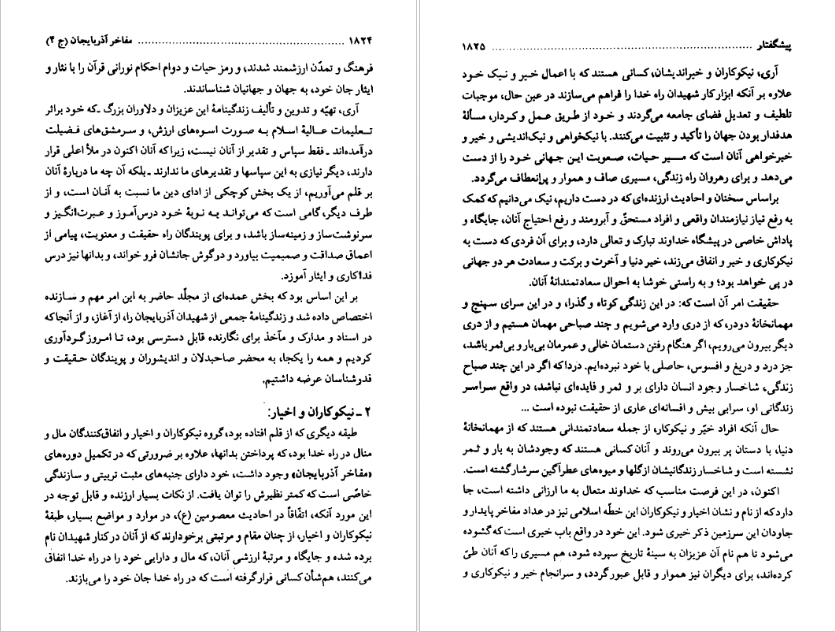 ۱۸۲۴ ........................................ مفاخر آذربایجان (ج ۴)
فرهنگ و تمدّن ارزشمند شدند، و رمز حیات و دوام احکام نورانی قرآن را با نثار و
ایثار جان خود، به جهان و جهانیان شناساندند.
آری، تهیّه و تدوین و تألیف زندگینامهٔ این عزیزان و دلاوران بزرگ ـ که خود براثر
تعلیمات عالیهٔ اسلام به صورت اسوه‌های ارزش، و سرمشق‌های فضیلت
درآمده‌اند ـ فقط سپاس و تقدیر از آنان نیست، زیرا که آنان اکنون در ملأ اعلی قرار
دارند، دیگر نیازی به این سپاسها و تقدیرهای ما ندارند ـ بلکه آن چه ما دربارهٔ آنان
بر قلم می‌آوریم، از یک بخش کوچکی از ادای دین ما نسبت به آنان است، و از
طرف دیگر، گامی است که می‌تواند به نوبهٔ خود درس‌آموز و عبرت‌انگیز و
سرنوشت‌ساز و زمینه‌ساز باشد، و برای پویندگان راه حقیقت و معنویت، پیامی از
اعماق صداقت و صمیمیت بیاورد و درگوش جانشان فرو خواند، و بدانها نیز درس
فداکاری و ایثار آموزد.
بر این اساس بود که بخش عمده‌ای از مجلّد حاضر به این امر مهم و سازنده
اختصاص داده شد و زندگینامهٔ جمعی از شهیدان آذربایجان را، از آغاز، و از آنجا که
در اسناد و مدارک و مآخذ برای نگارنده قابل دسترسی بود، تا امروز گردآوری
کردیم و همه را یکجا، به محضر صاحبدلان و اندیشوران و پویندگان حقیقت و
قدرشناسان عرضه داشتیم.
۲ ـ نیکوکاران و اخیار:
طبقه دیگری که از قلم افتاده بود، گروه نیکوکاران و اخیار و انفاق‌کنندگان مال و
منال در راه خدا بود، که پرداختن بدانها، علاوه بر ضرورتی که در تکمیل دوره‌های
«مفاخر آذربایجان» وجود داشت، خود دارای جنبه‌های مثبت تربیتی و سازندگی
خاصّی است که کمتر نظیرش را توان یافت. از نکات بسیار ارزنده و قابل توجه در
این مورد آنکه، اتفّاقاً در احادیث معصومین (ع)، در موارد و مواضع بسیار، طبقهٔ
نیکوکاران و اخیار، از چنان مقام و مرتبتی برخودارند که از آنان در کنار شهیدان نام
برده شده و جایگاه و مرتبهٔ ارزشی آنان، که مال و دارایی خود را در راه خدا انفاق
می‌کنند، هم‌شأن کسانی قرار گرفته است که در راه خدا جان خود را می‌بازند.
پیشگفتار ........................................ ۱۸۲۵
آری، نیکوکاران و خیراندیشان، کسانی هستند که با اعمال خیر و نیک خود
علاوه بر آنکه ابزار کار شهیدان راه خدا را فراهم می‌سازند در عین حال، موجبات
تلطیف و تعدیل فضای جامعه می‌گردند و خود از طریق عمل و کردار، مسألهٔ
هدفدار بودن جهان را تأکید و تثبیت می‌کنند. با نیکخواهی و نیک‌اندیشی و خیر و
خیرخواهی آنان است که مسیر حیات، صعوبت این جهانی خود را از دست
می‌دهد و برای رهروان راه زندگی، مسیری صاف و هموار و پرانعطاف می‌گردد.
براساس سخنان و احادیث ارزنده‌ای که در دست داریم، نیک می‌دانیم که کمک
به رفع نیاز نیازمندان واقعی و افراد مستحقّ و آبرومند و رفع احتیاج آنان، جایگاه و
پاداش خاصی در پیشگاه خداوند تبارک و تعالی دارد، و برای آن فردی که دست به
نیکوکاری و خیر و انفاق می‌زند، خیر دنیا و آخرت و برکت و سعادت هر دو جهانی
در پی خواهد بود؛ و به راستی خوشا به احوال سعادتمندانهٔ آنان.
حقیقت امر آن است که: در این زندگی کوتاه و گذرا، و در این سرای سپنج و
مهمانخانهٔ دودر، که از دری وارد می‌شویم و چند صباحی مهمان هستیم و از دری
دیگر بیرون می‌رویم، اگر هنگام رفتن دستمان خالی و عمرمان بی‌بار و بی‌ثمر باشد،
جز درد و دریغ و افسوس، حاصلی با خود نبرده‌ایم. دردا که اگر در این چند صباح
زندگی، شاخسار وجود انسان دارای بر و ثمر و فایده‌ای نباشد، در واقع سراسر
زندگانی او، سرابی بیش و افسانه‌ای عاری از حقیقت نبوده است ...
حال آنکه افراد خیّر و نیکوکار، از جمله سعادتمندانی هستند که از مهمانخانهٔ
دنیا، با دستان پر بیرون می‌روند و آنان کسانی هستند که وجودشان به بار و ثمر
نشسته است و شاخسار زندگانیشان ازگلها و میوه‌های عطرآگین سرشار گشته است.
اکنون، در این فرصت مناسب که خداوند متعال به ما ارزانی داشته است، جا
دارد که از نام و نشان اخیار و نیکوکاران این خطّه اسلامی نیز در عداد مفاخر پایدار و
جاودان این سرزمین ذکر خیری شود. این خود در واقع باب خیری است که گشوده
می‌شود تا هم نام آن عزیزان به سینهٔ تاریخ سپرده شود، هم مسیری را که آنان طیّ
کرده‌اند، برای دیگران نیز هموار و قابل عبور گردد، و سرانجام خیر و نیکوکاری و